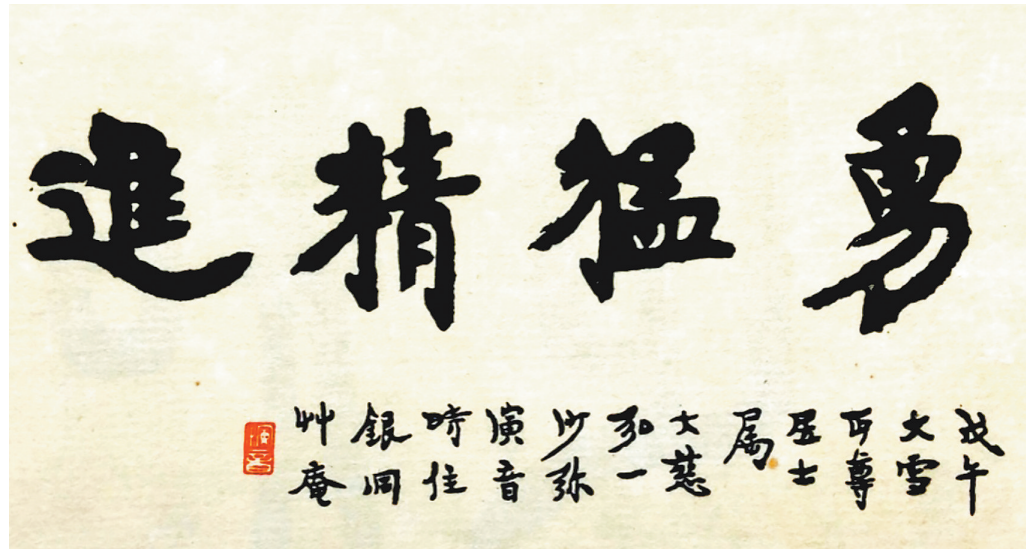 勇猛精進
戊午
大雪
丏尊
居士
属
大慈
弘一
沙弥
演音
時住
銀洞
艸庵